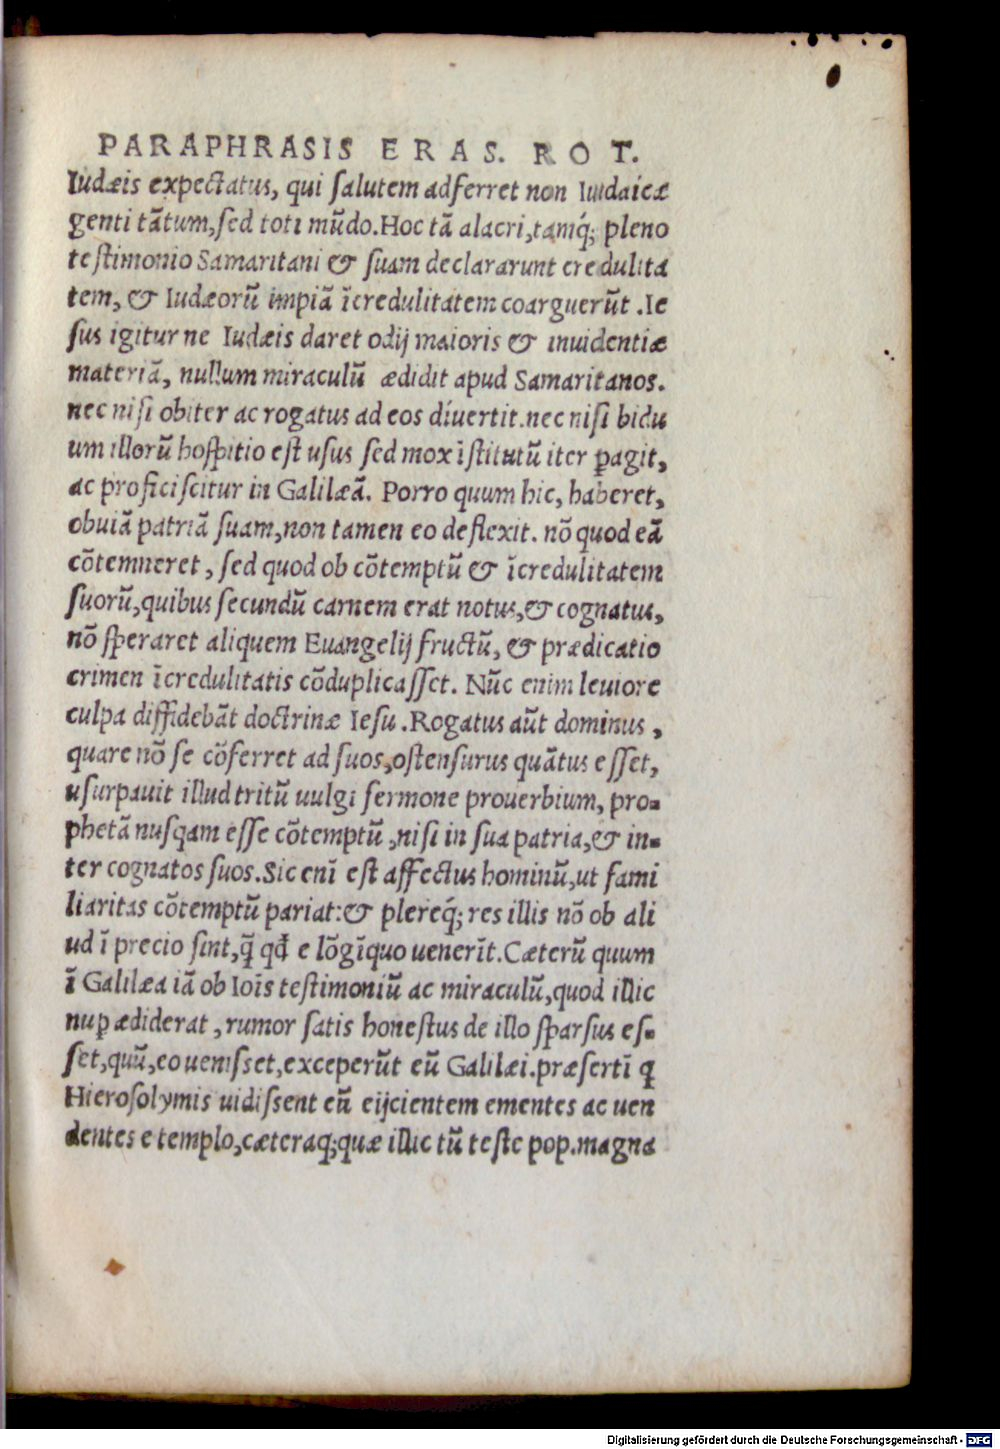 PARAPHRASIS ERAS. ROT.
Iudæis expectatus, qui ſalutem adferret non Iuidaicæ
genti tãtum,ſed toti mũdo.Hoc tã alacri,tamq́; pleno
teſtimonio Samaritani & ſuam declararunt credulita
tem, & Iudæorũ impiã ĩcredulitatem coarguerũt .Ie
ſus igitur ne Iudæis daret odij maioris & inuidentiæ
materiã, nullum miraculũ ædidit apud Samaritanos.
nec niſi obiter ac rogatus ad eos diuertit.nec niſi bidu
um illorũ hoſpitio eſt uſus ſed mox ĩſtitutũ iter ꝑagit,
ac proficiſcitur in Galilæã. Porro quum hic, haberet,
obuiã patriã ſuam,non tamen eo deflexit. nõ quod eã
cõtemneret, ſed quod ob cõtemptũ & ĩcredulitatem
ſuorũ,quibus ſecundũ carnem erat notus,& cognatus,
nõ ſperaret aliquem Euangelij fructũ, & prædicatio
crimen ĩcredulitatis cõduplicaſſet. Nũc enim leuiore
culpa diffidebãt doctrinæ Ieſu .Rogatus aũt dominus ,
quare nõ ſe cõferret ad ſuos,oſtenſurus quãtus eſſet,
uſurpauit illud tritũ uulgi ſermone prouerbium, pro-
phetã nuſqam eſſe cõtemptũ ,niſi in ſua patria,& in-
ter cognatos ſuos.Sic enĩ eſt affectus hominũ,ut fami
liaritas cõtemptũ pariat:& plereq́; res illis nõ ob ali
ud ĩ precio ſint,q̃ qđ e lõgĩquo uenerĩt.Cæterũ quum
ĩ Galilæa iã ob Ioĩs teſtimoniũ ac miraculũ,quod illic
nuꝑ ædiderat ,rumor ſatis honeſtus de illo ſparſus eſ-
ſet,quũ,eo ueniſſet,exceperũt eũ Galilæi.præſertĩ q
Hieroſolymis uidiſſent eũ eijcientem ementes ac uen
dentes e templo,cæteraq;quæ illic tũ teſte pop.magna
Digitalisierung gefördert durch die Deutsche Forschungsgemeinschaft - DFG